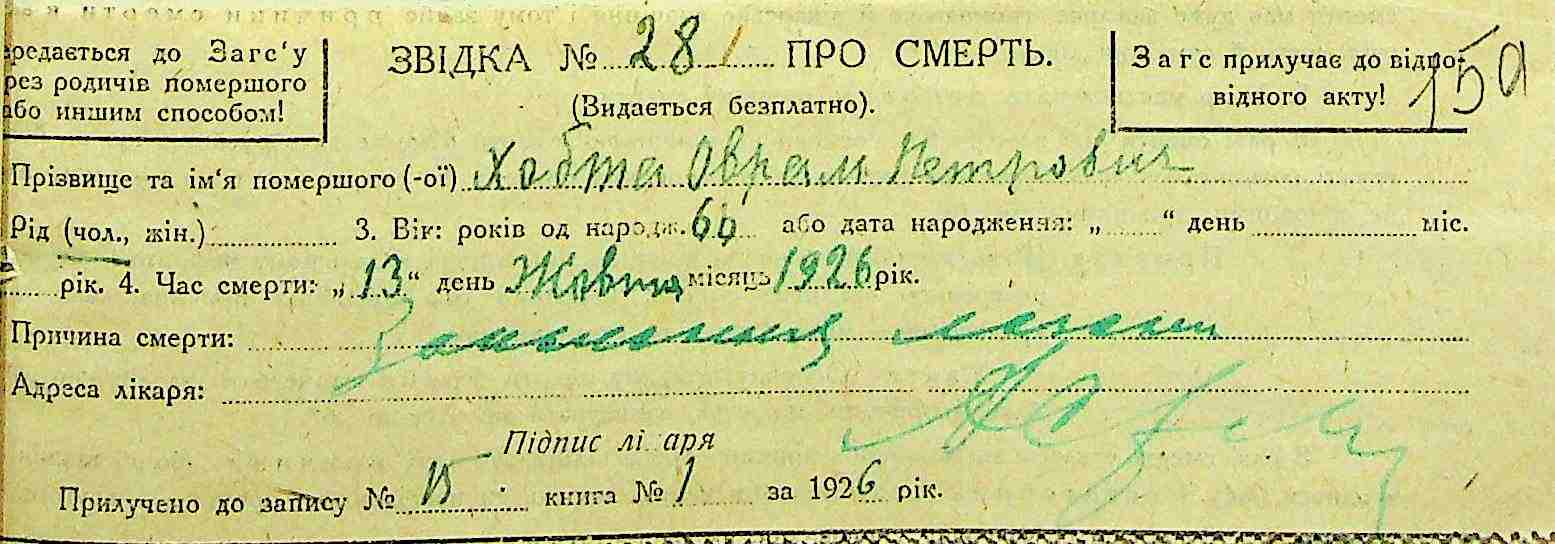 ередається до Загс'у
рез родичів помершого
або иншим способом!
ЗВІДКА № 28 ПРО СМЕРТЬ.
(Видається безплатно).
Загс прилучає до відпо-
відного акту!
15а
Прізвище та ім'я помершого (-ої) Хобта Оврам Петрович
Рід (чол., жін.) 3. Вік: років од народж. 66 або дата народження: „ " день міс.
рік. 4. Час смерти: „13" день Жовтня місяць 1926 рік.
Причина смерти: Запалення легень
Адреса лікаря:
Підпис лі аря
Прилучено до запису № 15 книга № 1 за 1926 рік.